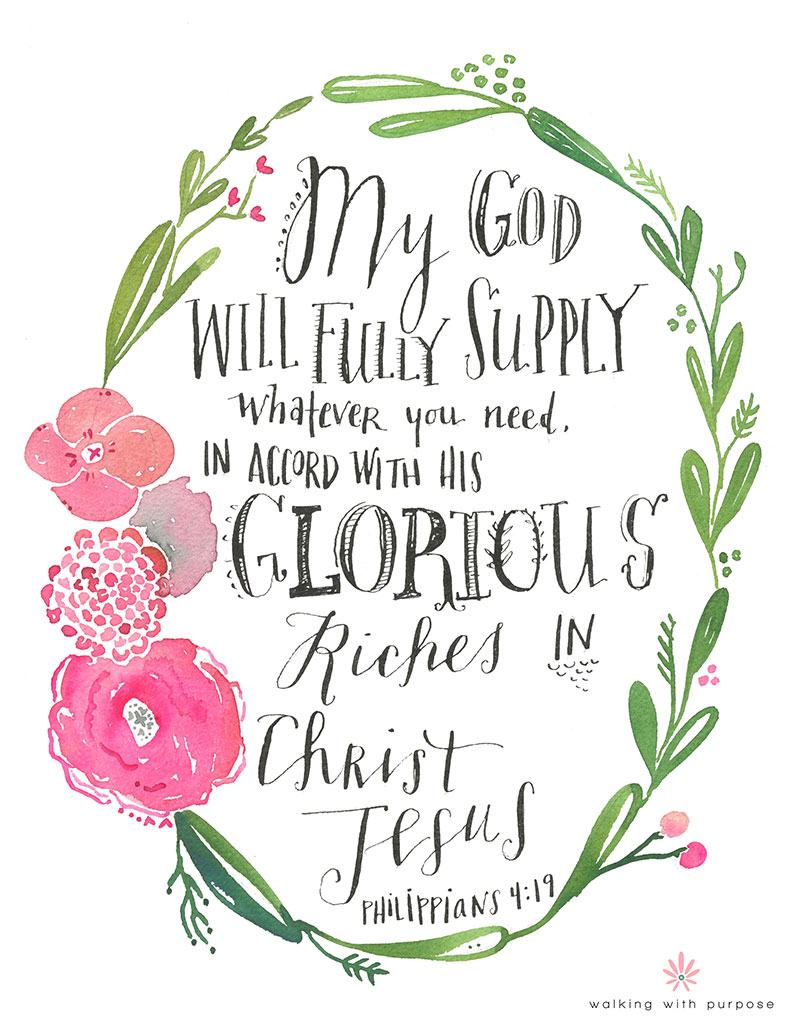 My GOD
WILL FULLY SUPPLY
whatever you need,
IN ACCORD WITH HIS
GLORIOUS
Riches IN
Christ
Jesus
PHILIPPIANS 4:19
walking with purpose